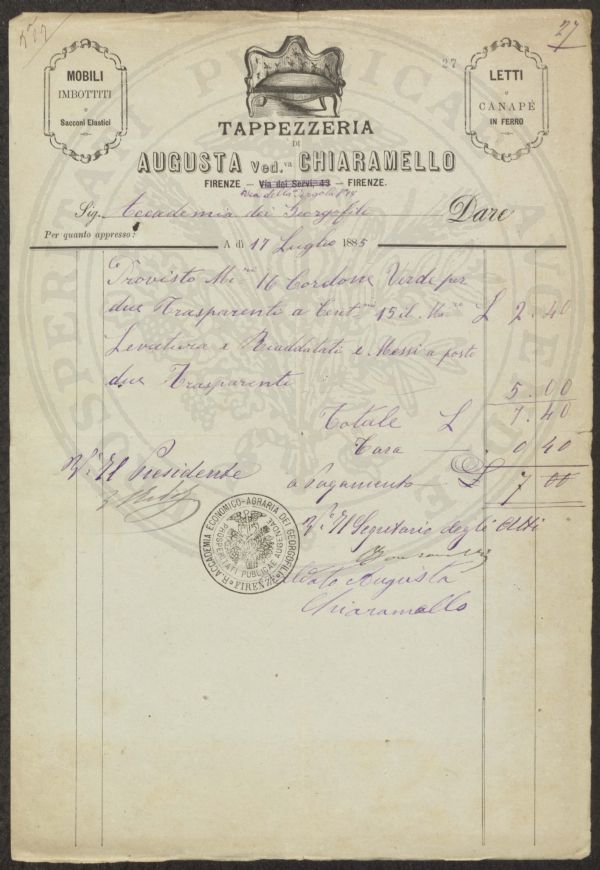 27
27
MOBILI
IMBOTTITI
e
Sacconi Elastici
LETTI
e
CANAPÈ
IN FERRO
TAPPEZZERIA
DI
AUGUSTA Ved.va CHIARAMELLO
FIRENZE — Via dei Servi, 43 — FIRENZE.
Via della Pergola
Sig. Accademia dei Georgofili Dare
Per quanto appresso:
A dì 17 Luglio 1885
Provisto Mi 16 Cordone Verde per
due Trasparenti a Cent 15 il M £ 2.40
Levatura e Riaddatati e Messi a posto
due Trasparenti 5.00
Totale L 7.40
Tara — 0.40
V° Il Presidente a Pagamento — £ 7 00
V° Il Segretario degli Atti
R. ACCADEMIA ECONOMICO-AGRARIA DEI GEORGOFILI
FIRENZE
PROSPERITATI PUBLICAE AUGENDAE
Saldato Augusta
Chiaramello
PROSPERITATI PUBLICAE AUGENDAE